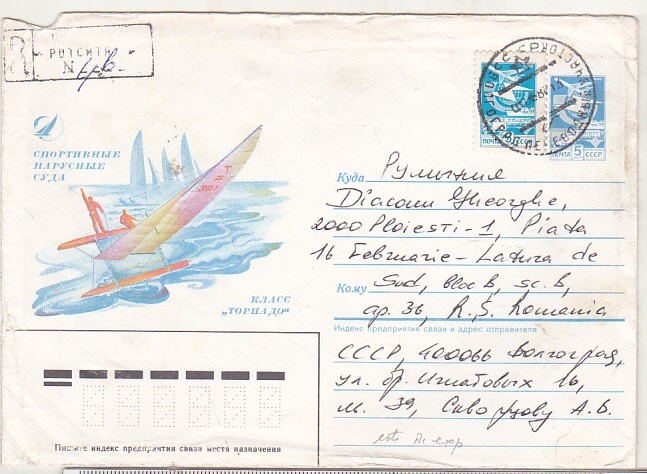 R
N 46
СПОРТИВНЫЕ
ПАРУСНЫЕ
СУДА
КЛАСС
„ТОРНАДО“
ПОЧТА СССР
ПОЧТА 5 СССР
Куда Румыния
Diaconu Gheorghe,
2000 Ploiesti-1, Piata
16 Februarie - Latura de
Кому Sud, bloc B, sc. B,
ap. 36, R.S. Romania
Индекс предприятия связи и адрес отправителя
СССР, 400066 Волгоград,
ул. бр. Игнатовых 16,
А.В.
Пишите индекс предприятия связи места назначения